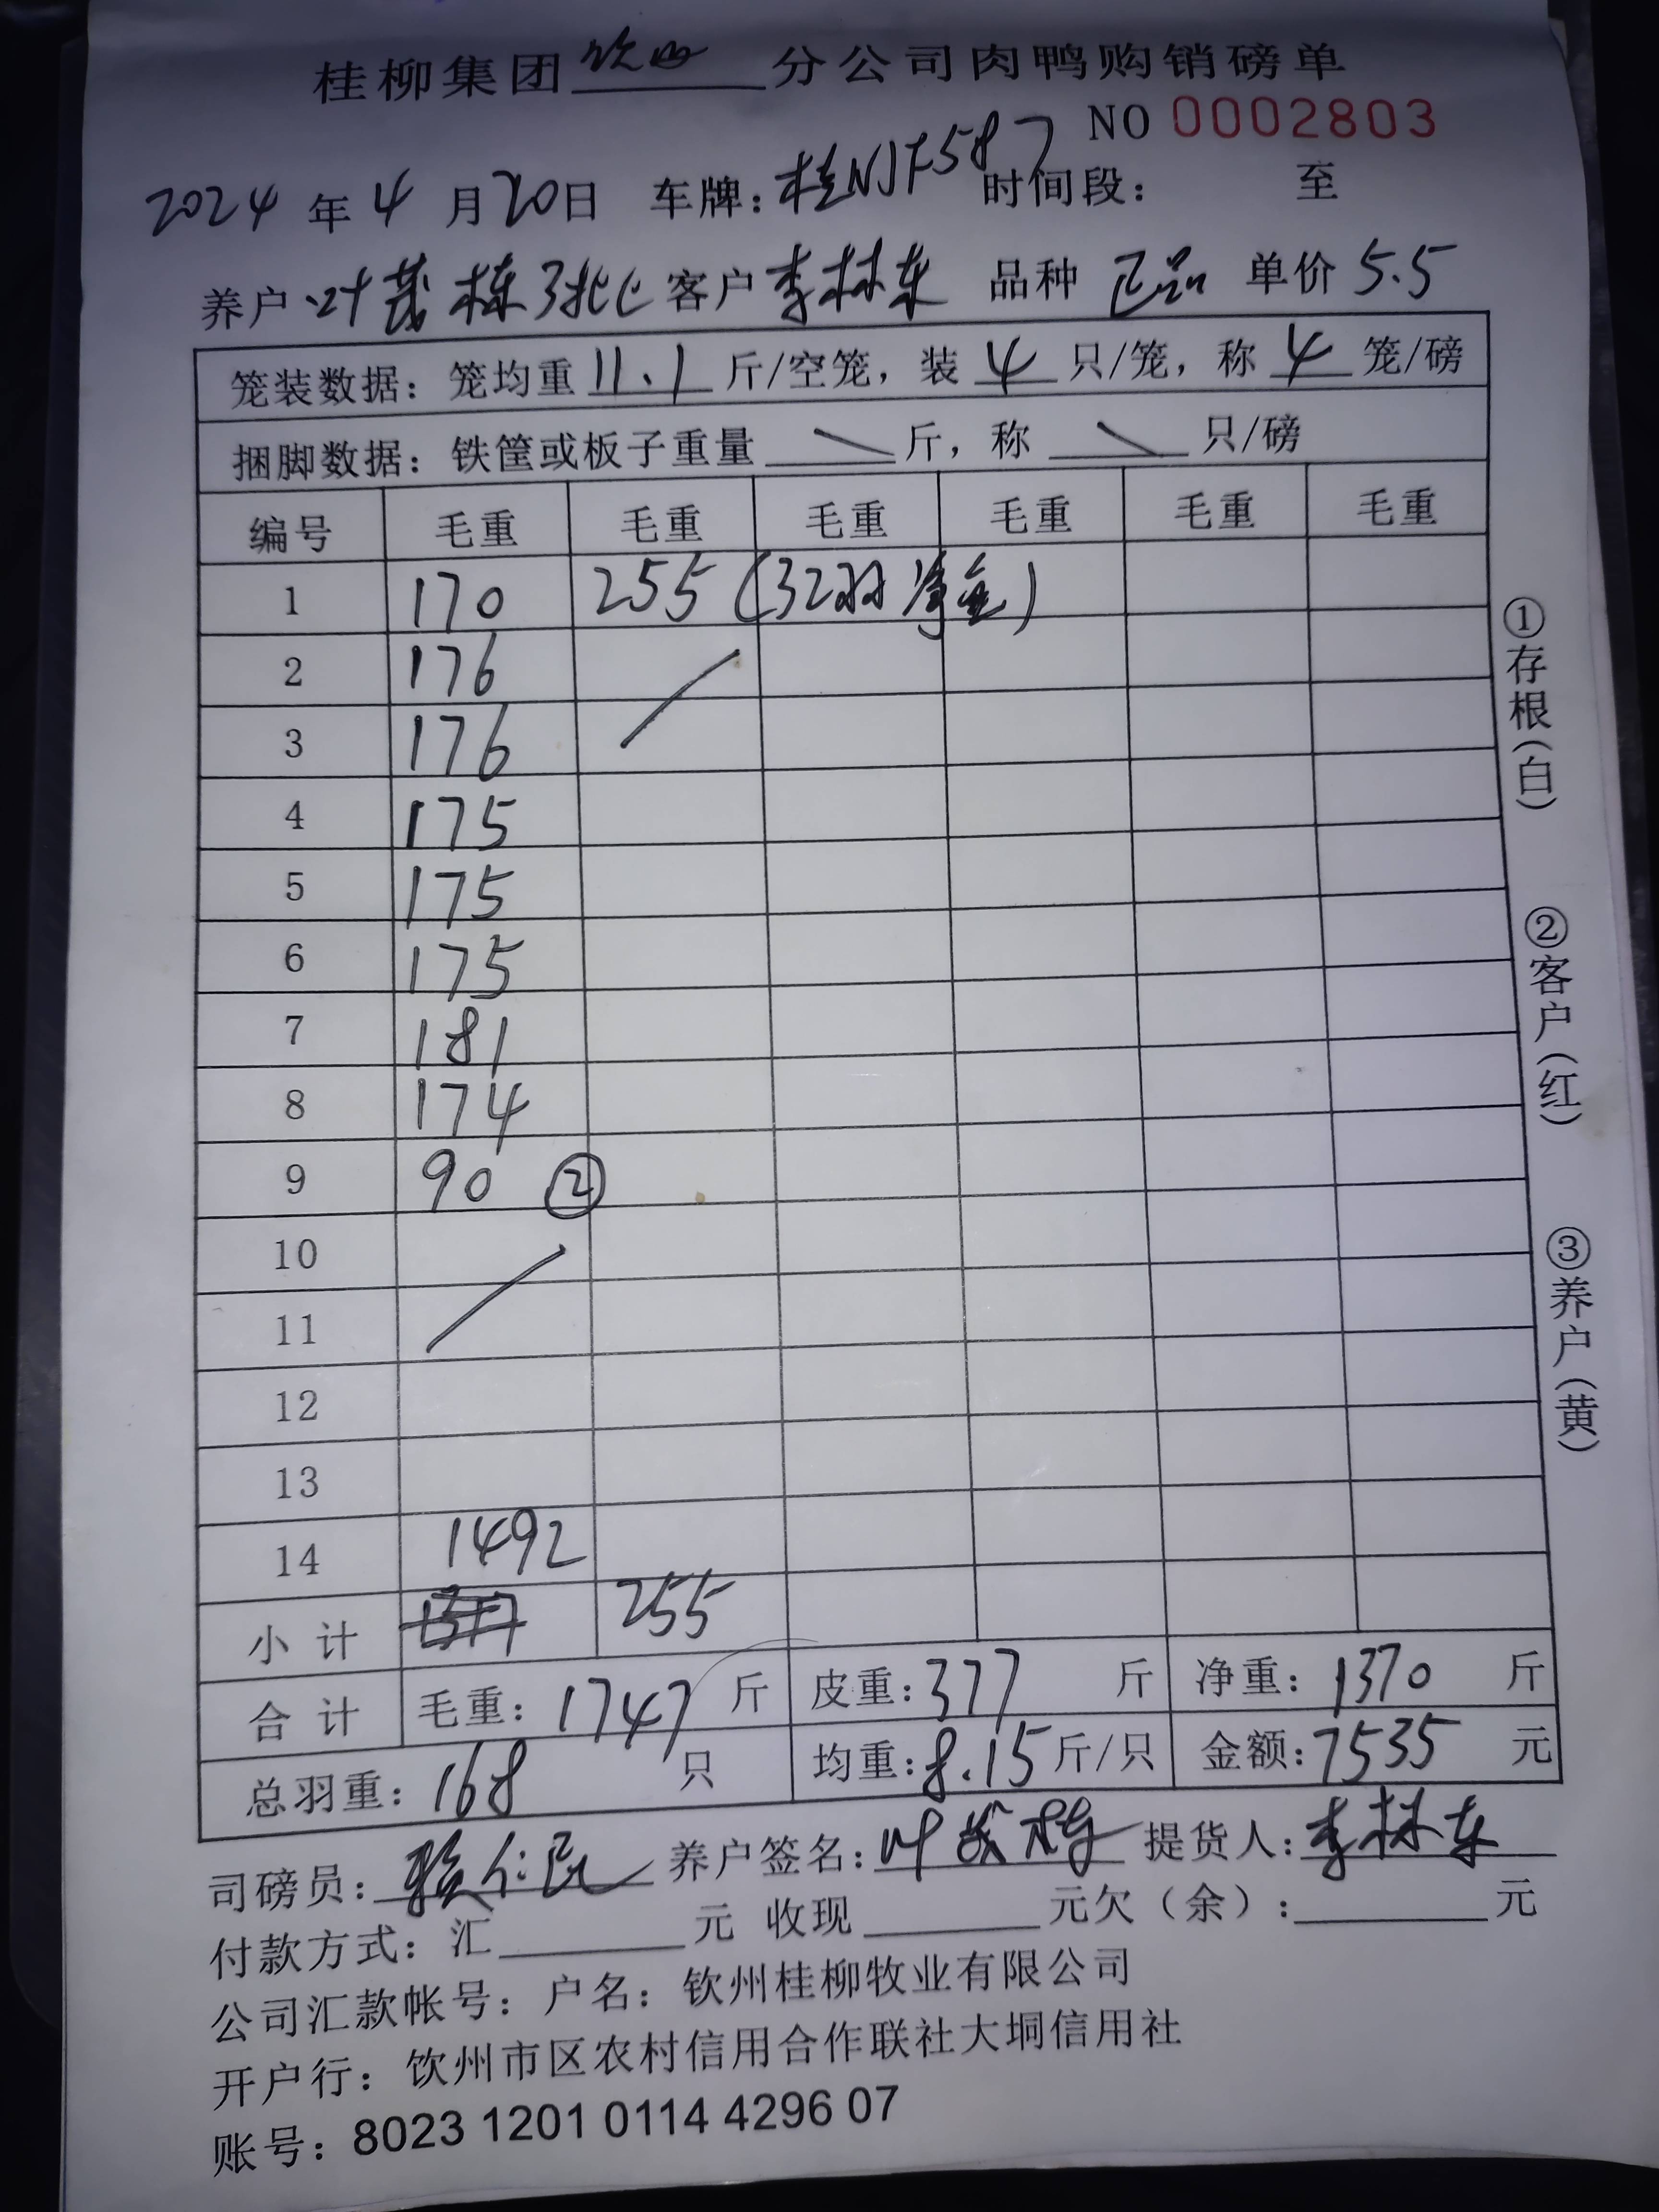 桂柳集团 钦州 分公司肉鸭购销磅单
NO 0002803
2024 年 4 月 20 日 车牌：桂NJF587 时间段： 至
养户 叶茂栋3批 客户 李林东 品种 正品 单价 5.5
笼装数据：笼均重 11.1 斤/空笼，装 4 只/笼，称 4 笼/磅
捆脚数据：铁筐或板子重量 斤，称 只/磅
编号 毛重 毛重 毛重 毛重 毛重 毛重
1 170 255 (32羽净重)
2 176
3 176
4 175
5 175
6 175
7 181
8 174
9 90 ②
10
11
12
13
14 1492
小计 255
合计 毛重：1747 斤 皮重：377 斤 净重：1370 斤
总羽重：168 只 均重：8.15 斤/只 金额：7535 元
司磅员： 仁民 养户签名：叶茂栋 提货人：李林东
付款方式：汇 元 收现 元欠（余）： 元
公司汇款帐号：户名：钦州桂柳牧业有限公司
开户行：钦州市区农村信用合作联社大垌信用社
账号：8023 1201 0114 4296 07
①存根(白)
②客户(红)
③养户(黄)